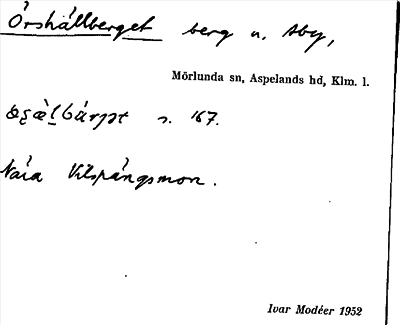 Órshállberget berg n. Åby,
Mörlunda sn, Aspelands hd, Klm. l.
s. 167.
Nära Vilspångsmon.
Ivar Modéer 1952